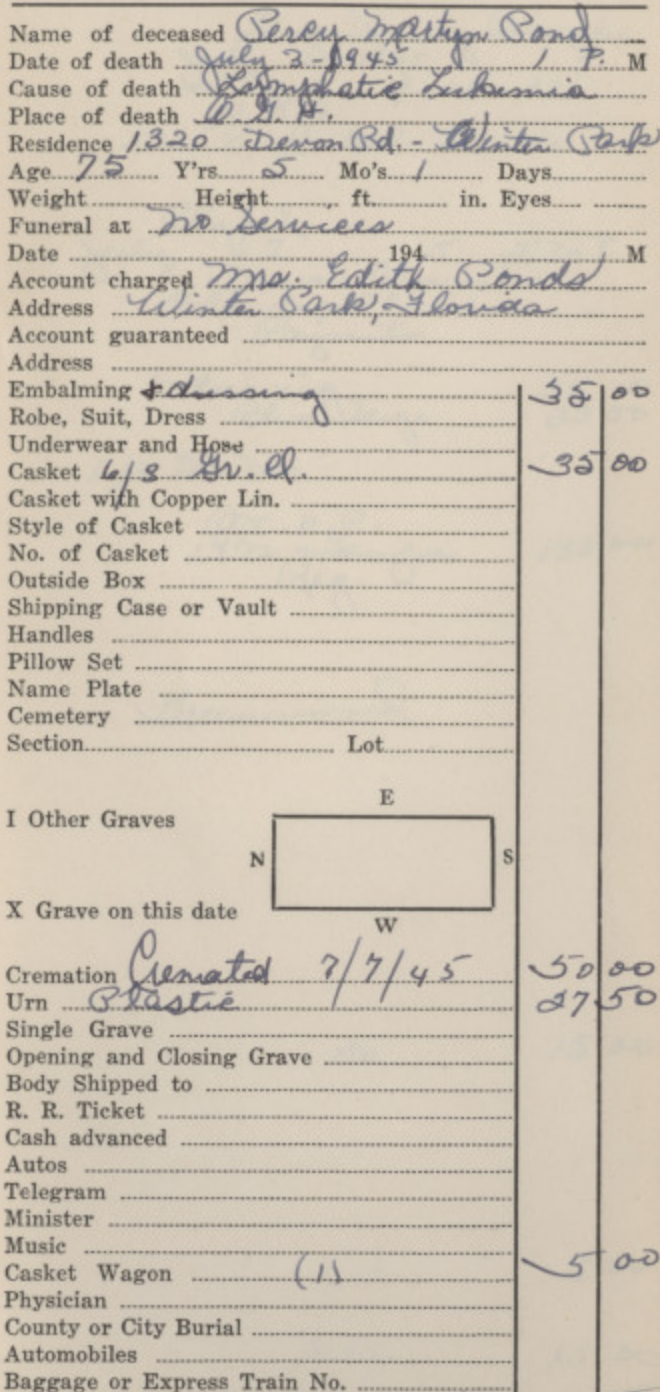 Name of deceased Percy Martyn Pond
Date of death July 3-1945 1 P. M
Cause of death Lymphatic Lukemia
Place of death O. G. H.
Residence 1320 Devon Rd. - Winter Park
Age 75 Y'rs 5 Mo's 1 Days
Weight Height ft. in. Eyes
Funeral at No Services
Date 194 M
Account charged Mrs. Edith Ponds
Address Winter Park, Florida
Account guaranteed
Address
Embalming & dressing 35 00
Robe, Suit, Dress
Underwear and Hose
Casket 6/3 Gr. Cl. 35 00
Casket with Copper Lin.
Style of Casket
No. of Casket
Outside Box
Shipping Case or Vault
Handles
Pillow Set
Name Plate
Cemetery
Section Lot
E
I Other Graves
N S
X Grave on this date
W
Cremation Cremated 7/7/45 50 00
Urn Plastic 27 50
Single Grave
Opening and Closing Grave
Body Shipped to
R. R. Ticket
Cash advanced
Autos
Telegram
Minister
Music
Casket Wagon (1) 5 00
Physician
County or City Burial
Automobiles
Baggage or Express Train No.